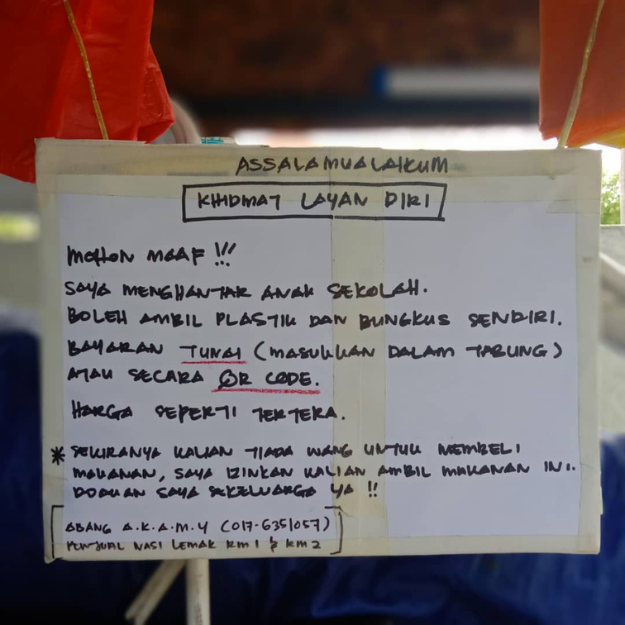 ASSALAMUALAIKUM
KHIDMAT LAYAN DIRI
MOHON MAAF !!!
SAYA MENGHANTAR ANAK SEKOLAH.
BOLEH AMBIL PLASTIK DAN BUNGKUS SENDIRI.
BAYARAN TUNAI (MASUKKAN DALAM TABUNG)
ATAU SECARA QR CODE.
HARGA SEPERTI TERTERA.
* SEKIRANYA KALIAN TIADA WANG UNTUK MEMBELI
MAKANAN, SAYA IZINKAN KALIAN AMBIL MAKANAN INI.
DOAKAN SAYA SEKELUARGA YA !!
ABANG A.K.A.M.Y (017-6351057)
PENJUAL NASI LEMAK RM1 & RM2